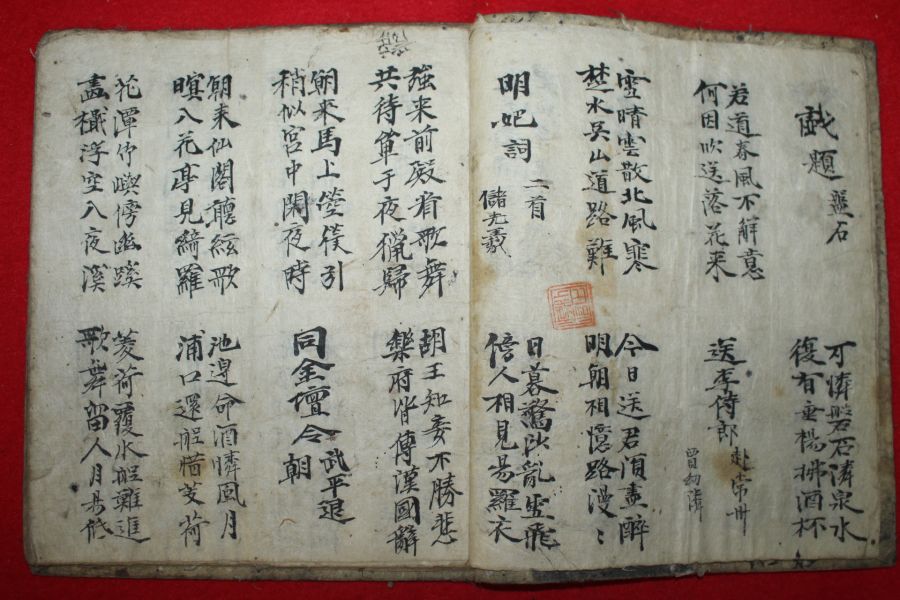 戱題 盤石
可憐磐石隣泉水
復有垂楊拂酒杯
若道春風不解意
何因吹送落花来
送李侍郎 赴常州
賈幼隣
雪晴雲散北風寒
楚水吳山道路難
今日送君須盡醉
明朝相憶路漫〻
明妃詞 二首
儲光羲
日暮驚沙亂雪飛
傍人相見易羅衣
強来前殿看歌舞
共待單于夜獵歸
胡王知妾不勝悲
樂府皆傳漢國辭
朝来馬上箜篌引
稍似宮中閑夜時
同金壇令朝 武平退
朝来仙閣聽絃歌
暝入花亭見綺羅
池邉命酒憐風月
浦口還舡惜芰荷
花潭竹嶼傍幽蹊
畫檝浮空入夜溪
菱荷覆水舡難進
歌舞留人月易低